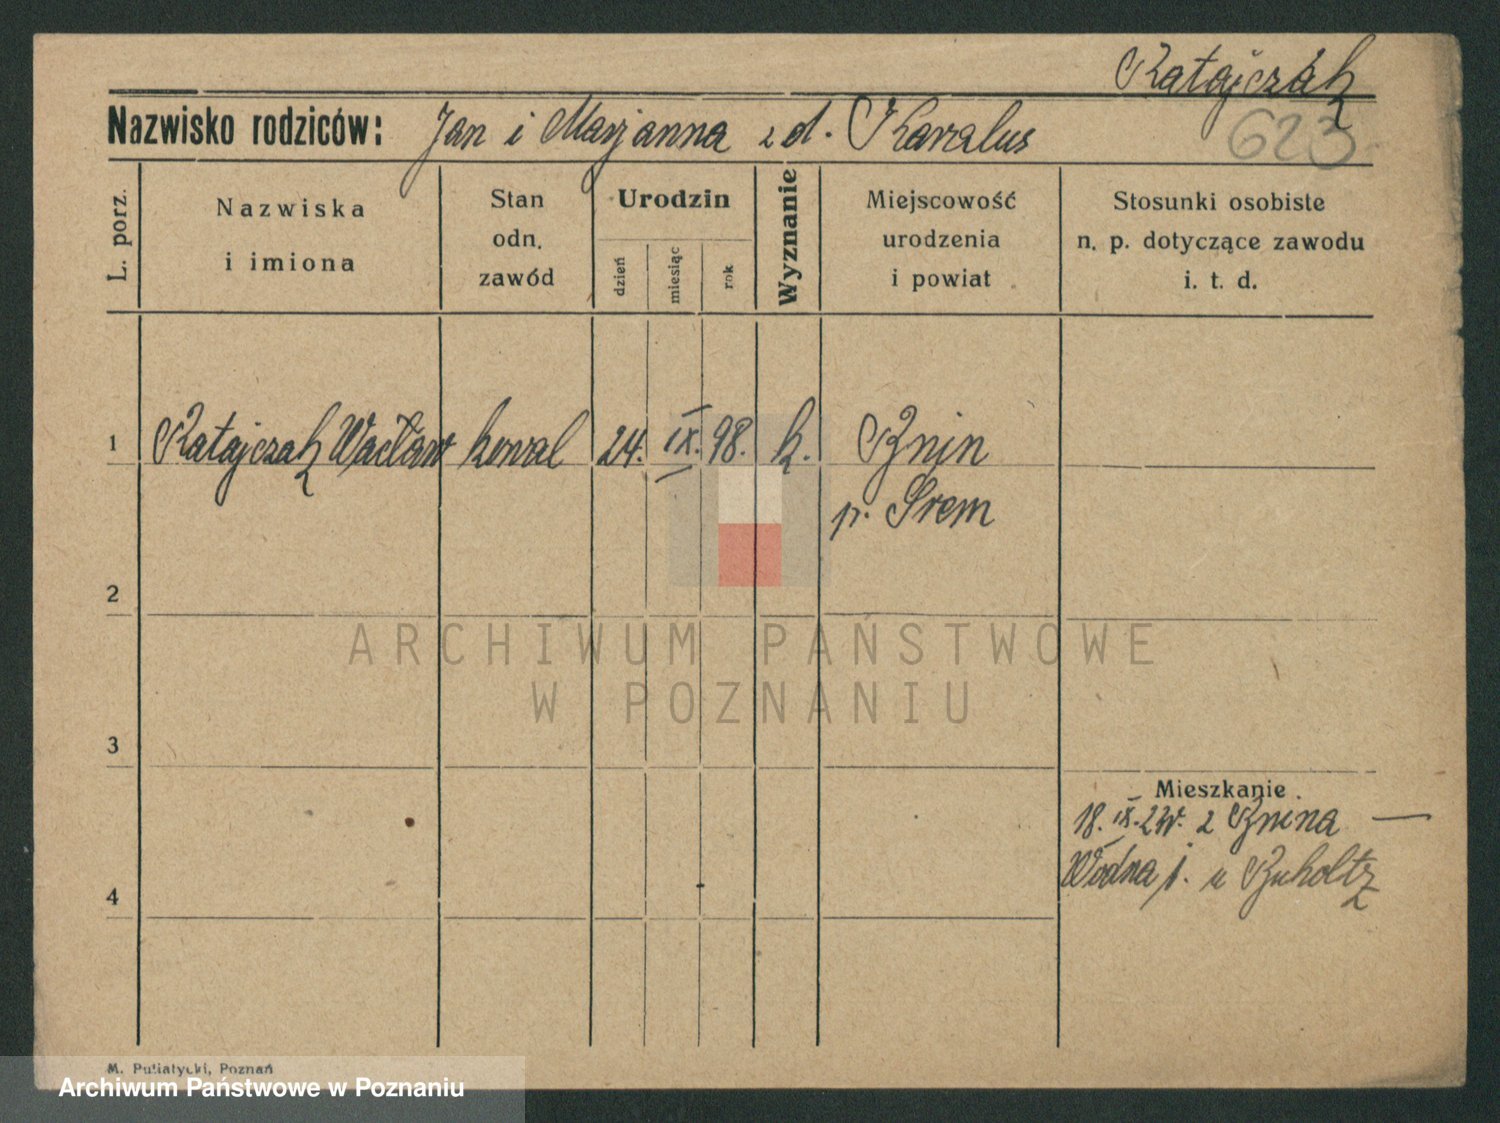 Ratajczak
Nazwisko rodziców: Jan i Marjanna z d. Karalus
623
L. porz.
Nazwiska
i imiona
Stan
odn.
zawód
Urodzin
dzień
miesiąc
rok
Wyznanie
Miejscowość
urodzenia
i powiat
Stosunki osobiste
n. p. dotyczące zawodu
i. t. d.
1 Ratajczak Wacław kowal 24. IX. 98. k. Bnin
p. Śrem
2
ARCHIWUM PAŃSTWOWE
W POZNANIU
3
Mieszkanie
18. IX. 2 z Bnina —
Wodna u Buholtz
4
M. Putiatycki, Poznań
Archiwum Państwowe w Poznaniu